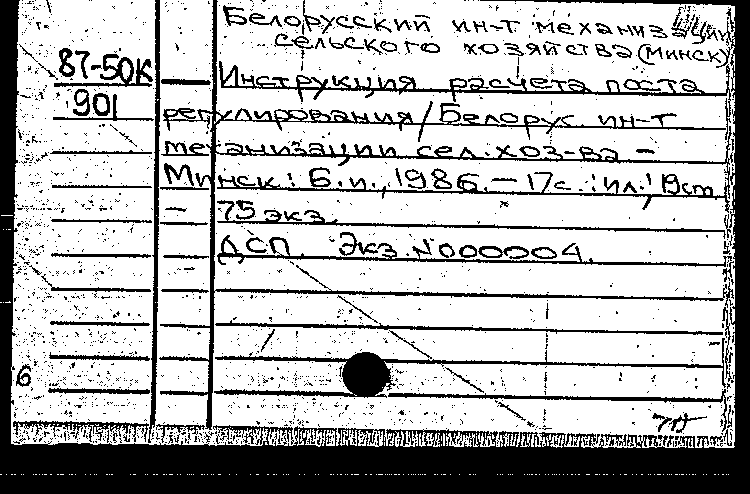 Белорусский ин-т механизации
сельского хозяйства (Минск)
87-50К
901
Инструкция расчета поста
регулирования / Белорус. ин-т
механизации сел. хоз-ва -
Минск: Б.и., 1986. - 17с.: ил.; 19см.
- 75 экз.
ДСП. Экз. №000004.
6